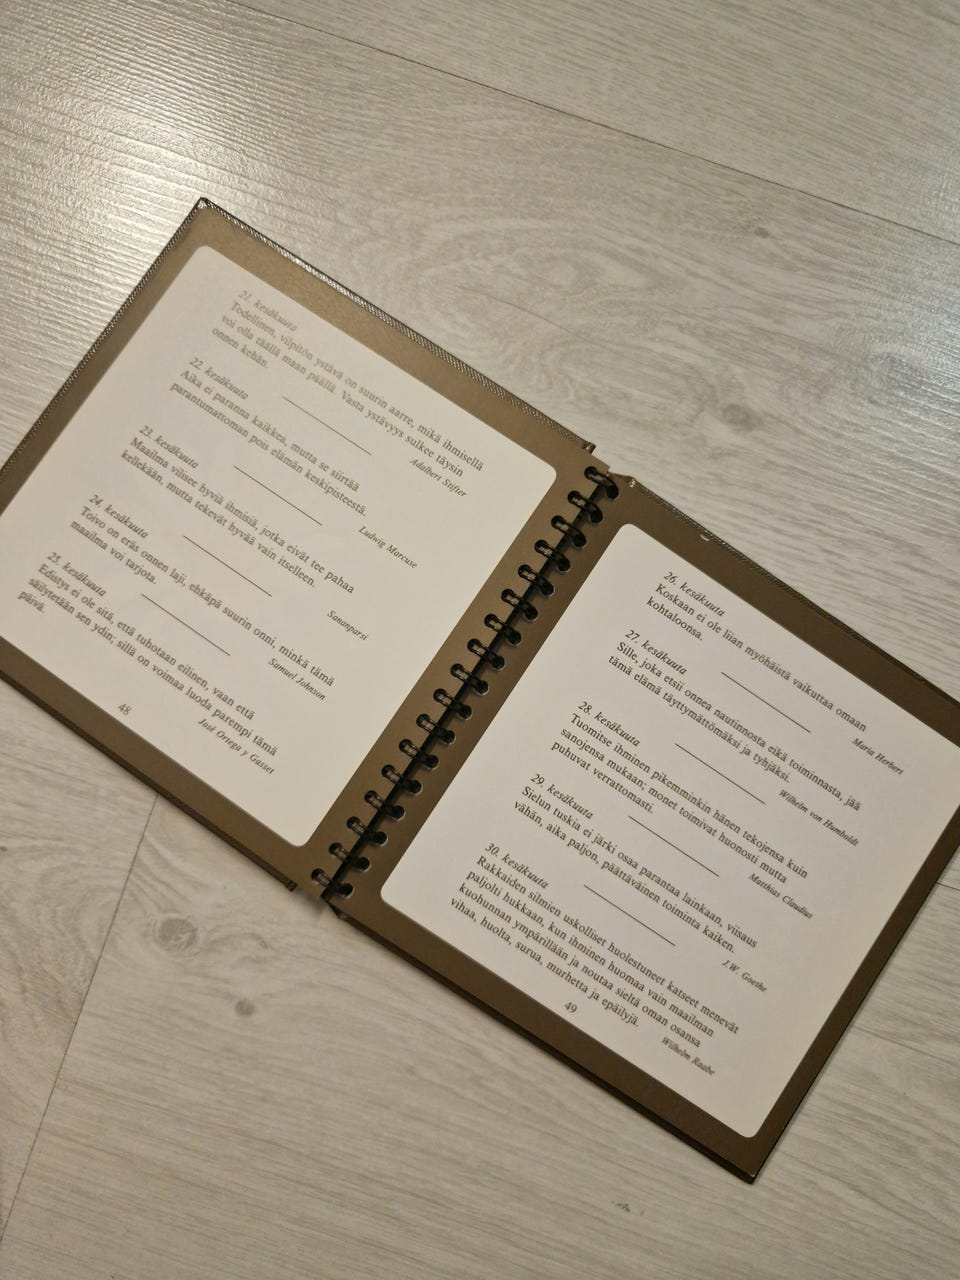 21. kesäkuuta
Todellinen, vilpitön ystävä on suurin aarre, mikä ihmisellä
voi olla täällä maan päällä. Vasta ystävyys sulkee täysin
onnen kehän.
Adalbert Stifter
22. kesäkuuta
Aika ei paranna kaikkea, mutta se siirtää
parantumattoman pois elämän keskipisteestä.
Ludwig Marcuse
23. kesäkuuta
Maailma vilisee hyviä ihmisiä, jotka eivät tee pahaa
kellekään, mutta tekevät hyvää vain itselleen.
Sananparsi
24. kesäkuuta
Toivo on eräs onnen laji, ehkäpä suurin onni, minkä tämä
maailma voi tarjota.
Samuel Johnson
25. kesäkuuta
Edistys ei ole sitä, että tuhotaan eilinen, vaan että
säilytetään sen ydin; sillä on voimaa luoda parempi tämä
päivä.
José Ortega y Gasset
48
26. kesäkuuta
Koskaan ei ole liian myöhäistä vaikuttaa omaan
kohtaloonsa.
Maria Herbert
27. kesäkuuta
Sille, joka etsii onnea nautinnosta eikä toiminnasta, jää
tämä elämä täyttymättömäksi ja tyhjäksi.
Wilhelm von Humboldt
28. kesäkuuta
Tuomitse ihminen pikemminkin hänen tekojensa kuin
sanojensa mukaan; monet toimivat huonosti mutta
puhuvat verrattomasti.
Matthias Claudius
29. kesäkuuta
Sielun tuskia ei järki osaa parantaa lainkaan, viisaus
vähän, aika paljon, päättäväinen toiminta kaiken.
J.W. Goethe
30. kesäkuuta
Rakkaiden silmien uskolliset huolestuneet katseet menevät
paljolti hukkaan, kun ihminen huomaa vain maailman
kuohunnan ympärillään ja noutaa sieltä oman osansa
vihaa, huolta, surua, murhetta ja epäilyjä.
Wilhelm Raabe
49